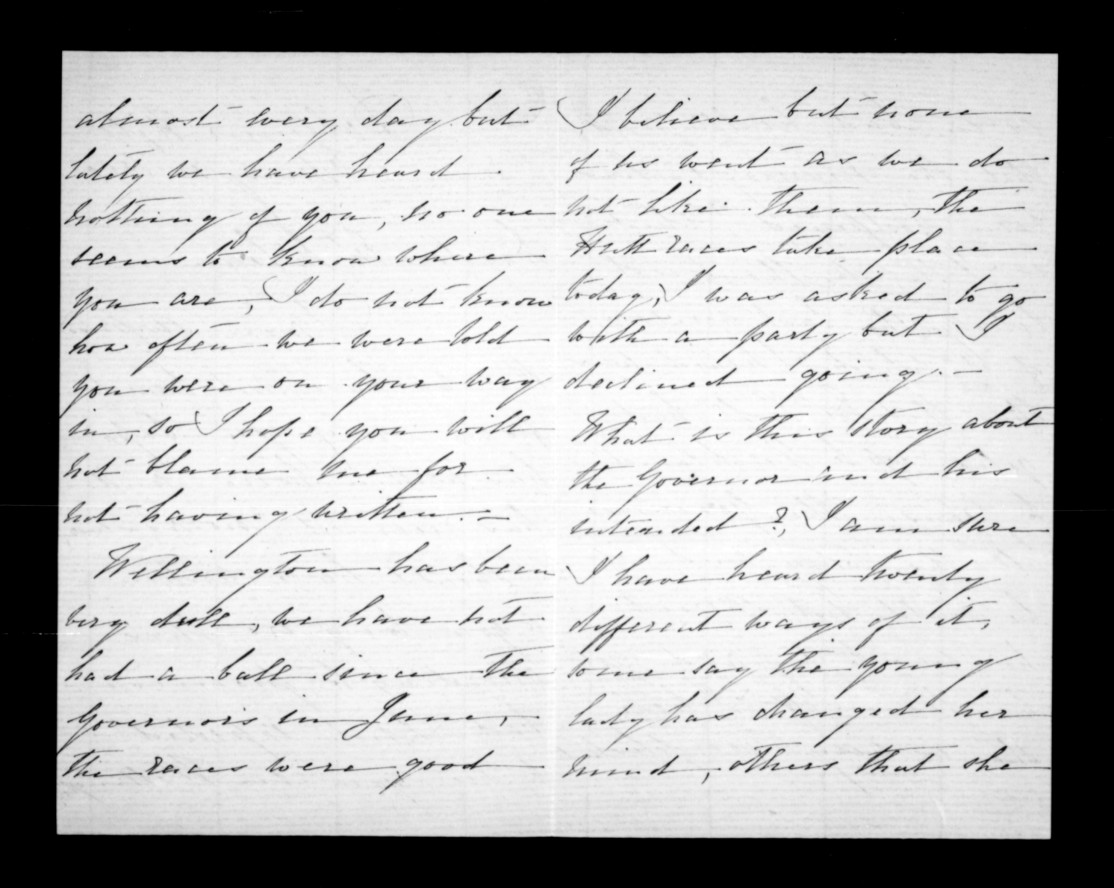 almost every day but
lately we have heard
nothing of you, no one
seems to know where
you are, I do not know
how often we were told
you were on your way
in, so I hope you will
not blame me for
not having written. —
Wellington has been
very dull, we have not
had a ball since the
Governors in June,
the races were good
I believe but none
of us went as we do
not like them, the
Hutt races take place
today, I was asked to go
with a party but I
declined going. —
What is this story about
the Governor and his
intended?, I am sure
I have heard twenty
different ways of it,
some say the young
lady has changed her
mind, others that she